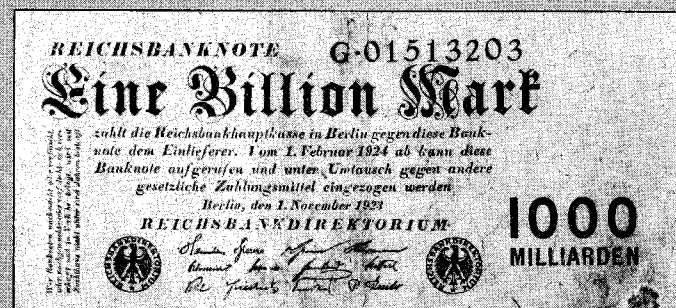 REICHSBANKNOTE G·01513203
Eine Billion Mark
zahlt die Reichsbankhauptkasse in Berlin gegen diese Bank-
note dem Einlieferer. Vom 1. Februar 1924 ab kann diese
Banknote aufgerufen und unter Umtausch gegen andere
gesetzliche Zahlungsmittel eingezogen werden
Berlin, den 1. November 1923
REICHSBANKDIREKTORIUM
1000
MILLIARDEN
REICHSBANKDIREKTORIUM
REICHSBANKDIREKTORIUM